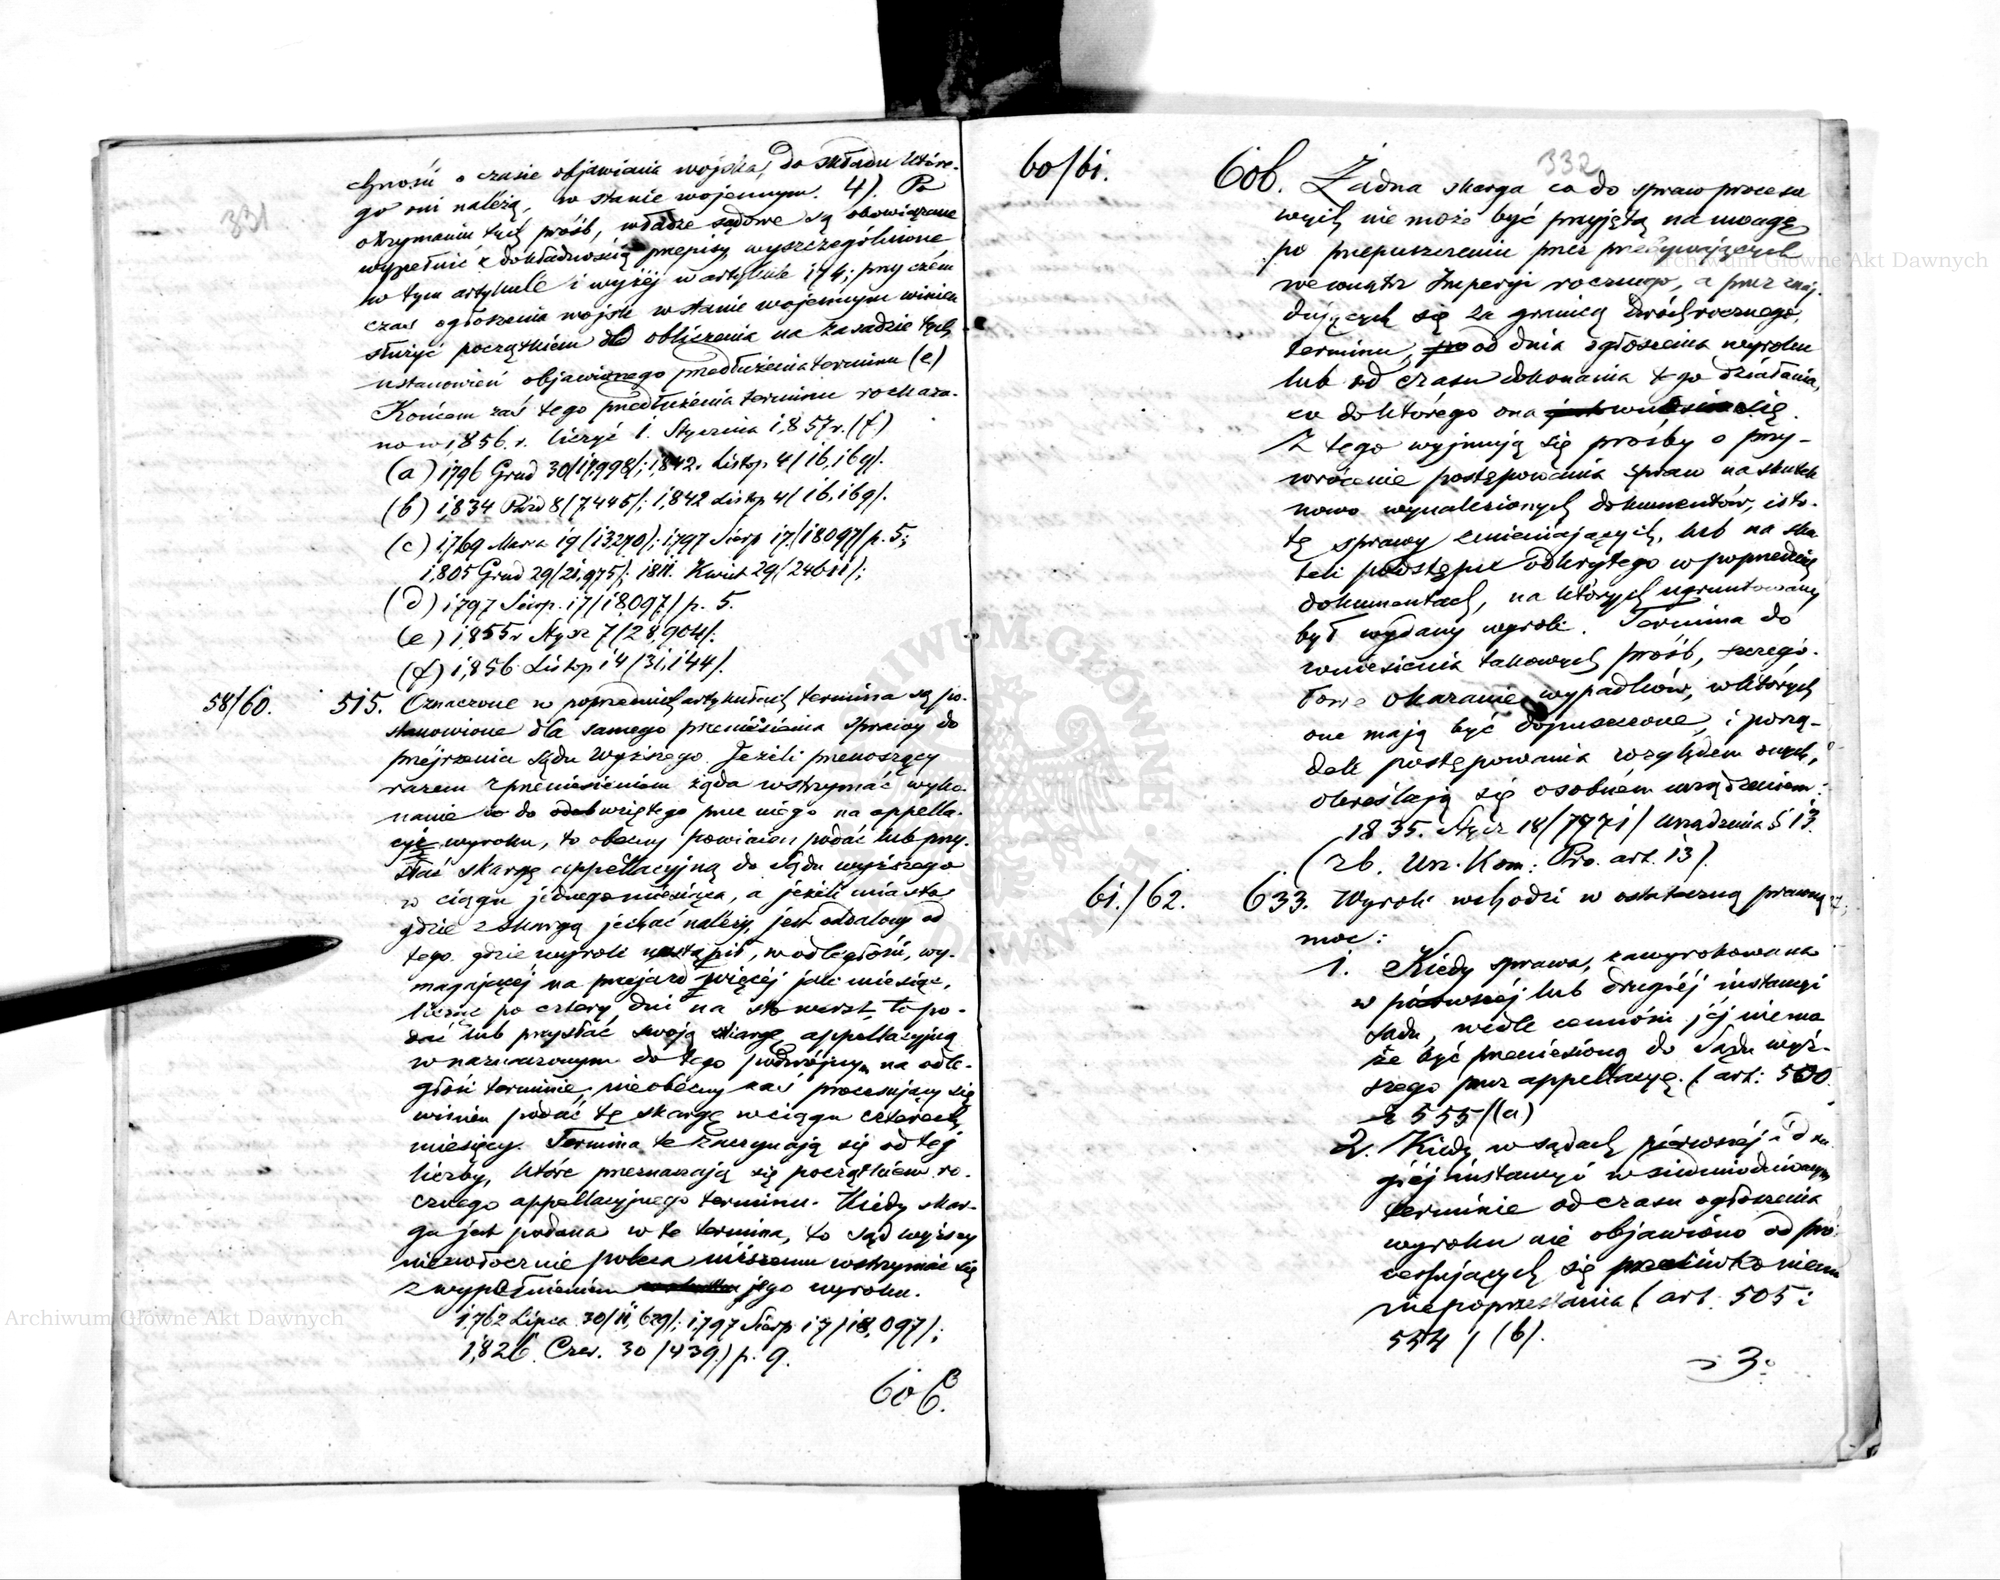 331
chność o czasie objawiania wojska, do składu które-
go oni należą, w stanie wojennym. 4). Po
otrzymaniu tych próśb, władze sądowe są obowiązane
wypełnić z dokładnością przepisy wyszczególnione
w tym artykule i wyżej w artykule 174; przy czém
czas ogłoszenia wojsk w stanie wojennym winien
służyć początkiem dla obliczenia na zasadzie tych
ustanowień objawionego przedłużenia terminu (e)
Końcem zaś tego przedłużenia terminu rozkaza-
no w 1856. r. liczyć 1. Stycznia 1,857 r. (f)
(a) 1796 Grud 30/17,998/; 1,842. Listop. 4/16,169/.
(b) 1,834 Paźd 8/7,445/; 1,842 Listop 4/16,169/.
(c) 1,769 Marca 19/13,270/; 1,797 Sierp 17/18097/ p. 5;
1,805 Grud 29/21,975/; 1811. Kwiet 29/24611/;
(d) 1,797 Sierp. 17/18,097/ p. 5.
(e) 1,855 r Stycz 7/28,904/.
(f) 1,856 Listop 14/31,144/.
58/60. 515. Oznaczone w poprzednich artykułach termina są po-
stanowione dla samego przeniesienia sprawy do
przejrzenia Sądu Wyższego. Jeżeli przenoszący
razem z przeniesieniem żąda wstrzymać wyko-
nanie do wziętego przez niego na appella-
cyę wyroku, to obecny powinien podać lub przy-
słać skargę appellacyjną do Sądu wyższego
w ciągu jednego miesiąca, a jeżeli miasto
gdzie z skargą jechać należy, jest oddalony od
tego gdzie wyrok nastąpił, w odległości, wy-
magającej na przejazd więcéj jak miesiąc,
licząc po cztery dni na sto werst, to po-
dać lub przysłać swoją skargę appellacyjną
w naznaczonym do tego podwójnym na odle-
głość terminie, nieobecny zaś procesujący się
winien podać tę skargę w ciągu czterech
miesięcy. Termina te zaczynają się od téj
liczby, które przeznaczają się początkiem ro-
cznego appellacyjnego terminu. Kiedy skar-
ga jest podana w te termina, to sąd wyższy
niezwłocznie poleca niższemu wstrzymać się
z wypełnieniem jego wyroku.
1,762 Lipca 30/11,629/; 1,797 Sierp 17/18,097/;
1,826. Czer. 30/439/ p. 9.
606.
332
60/61. 606. Żadna skarga co do spraw proceso
wych nie może być przyjętą na uwagę
po przepuszczeniu przez przebywających
wewnątrz Imperyi rocznego, a przez znaj-
dujących się za granicą dwóchrocznego,
terminu, od dnia ogłoszenia wyroku
lub od czasu dokonania tego działania,
co do którego ona wniesie się.
Z tego wyjmują się prośby o przy-
wrócenie postępowania spraw na skutek
nowo wynalezionych dokumentów, isto-
tę sprawy zmieniających, lub na sku
tek podstępu odkrytego w poprzednich
dokumentach, na których ugruntowany
był wydany wyrok. Termina do
wniesienia takowych próśb, szczegó-
łowe okazanie wypadków, w których
one mają być dopuszczone, i porzą-
dek postępowania względem onych,
określają się osobném urządzeniem:
1835. Stycz 18/7771/ urządzenia § 13.
(zb. Urz. Kom: Pro. art. 13).
61./62. 633. Wyrok wchodzi w ostateczną prawną
moc:
1. Kiedy sprawa, zawyrokowana
w pierwszéj lub drugiéj instancyi
Sądu, wedle cenności jéj niemo
że być przeniesioną do Sądu wyż-
szego przez appellacyę. (art: 500
555/(a)
2. Kiedy w sądach piérwszéj i dru
giéj instancyi w siedmiodniowym
terminie od czasu ogłoszenia
wyroku nie objawiono od pro-
cesujących się
niepoprzestania (art. 505 i
554) (b).
3.
Archiwum Główne Akt Dawnych
Archiwum Główne Akt Dawnych
ARCHIWUM GŁÓWNE AKT DAWNYCH